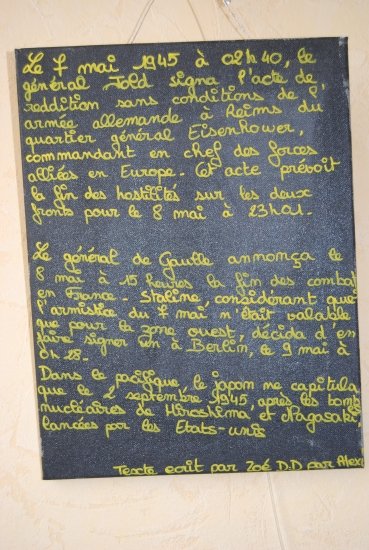 Le 7 mai 1945 à 02h40, le
général Jold signa l'acte de
reddition sans conditions de l'
armée allemande à Reims du
quartier général Eisenhower,
commandant en chef des forces
alliées en Europe. Cet acte prévoit
la fin des hostilités sur les deux
fronts pour le 8 mai à 23h01.
Le général de Gaulle annonça le
8 mai à 15 heures la fin des combat
en France. Staline, considérant que
l'armistice du 7 mai n'était valable
que pour la zone ouest, décida d'en
faire signer un à Berlin, le 9 mai à
0h28.
Dans le pacifique, le japon ne capitula
que le 2 septembre 1945, après les bomb
nucléaires de Hiroshima et Nagasaki,
lancées par les Etats-unis
Texte écrit par Zoé D.D par Alex